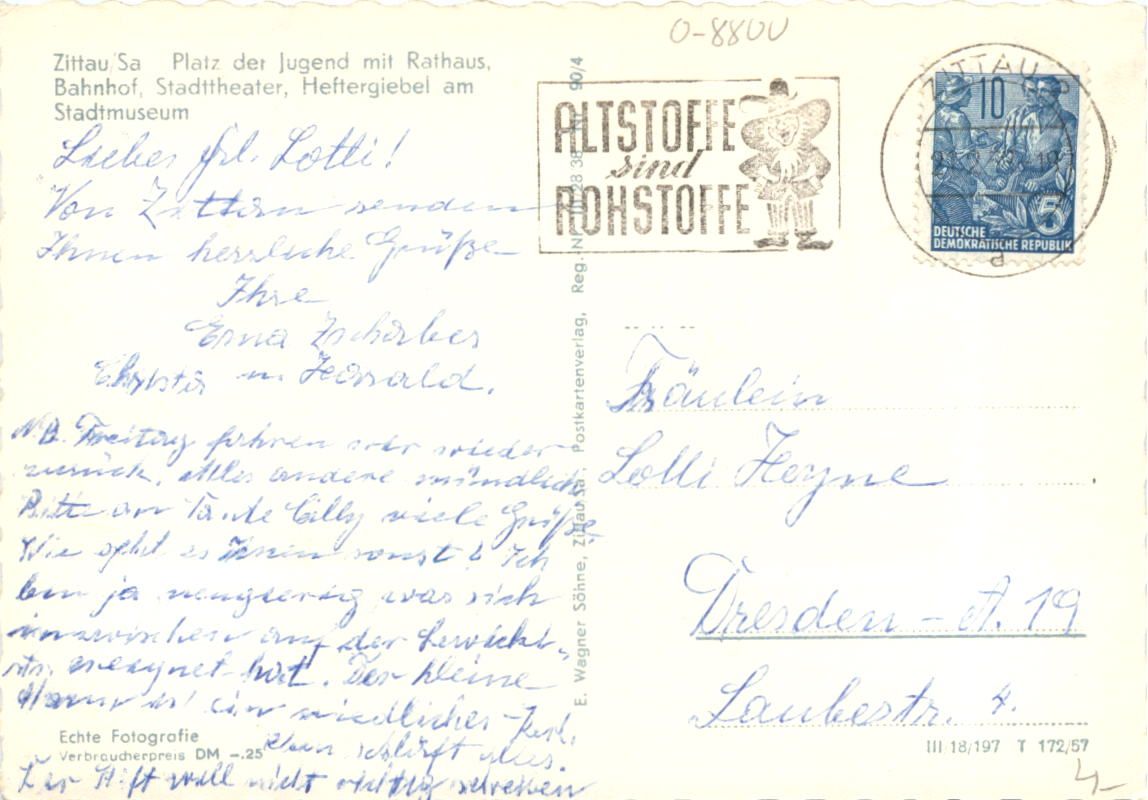 O-8800
Zittau/Sa Platz der Jugend mit Rathaus,
Bahnhof, Stadttheater, Heftergiebel am
Stadtmuseum
Liebes Frl. Lotti!
Von Zittau senden
Ihnen herzliche Grüße
Ihre
Erna
u. Harald.
NB. Freitag fahren wir wieder
zurück. Alles andere mündlich
Bitte an Tante Cilly viele Grüße.
Wie geht es Ihnen sonst? Ich
bin ja neugierig, was sich
inzwischen auf der
ereignet hat. Der kleine
Mann ist ein niedliches Kerl.
schläft alles.
Der Stift will nicht richtig schreiben
Echte Fotografie
Verbraucherpreis DM -.25
E. Wagner Söhne, Zittau/Sa., Postkartenverlag, Reg.-Nr.
90/4
ALTSTOFFE
sind
ROHSTOFFE
ZITTAU
d
10
5
DEUTSCHE
DEMOKRATISCHE REPUBLIK
Fräulein
Lotti Heyne
Dresden - A. 19
Laubestr. 4.
III/18/197 T 172/57
4,-